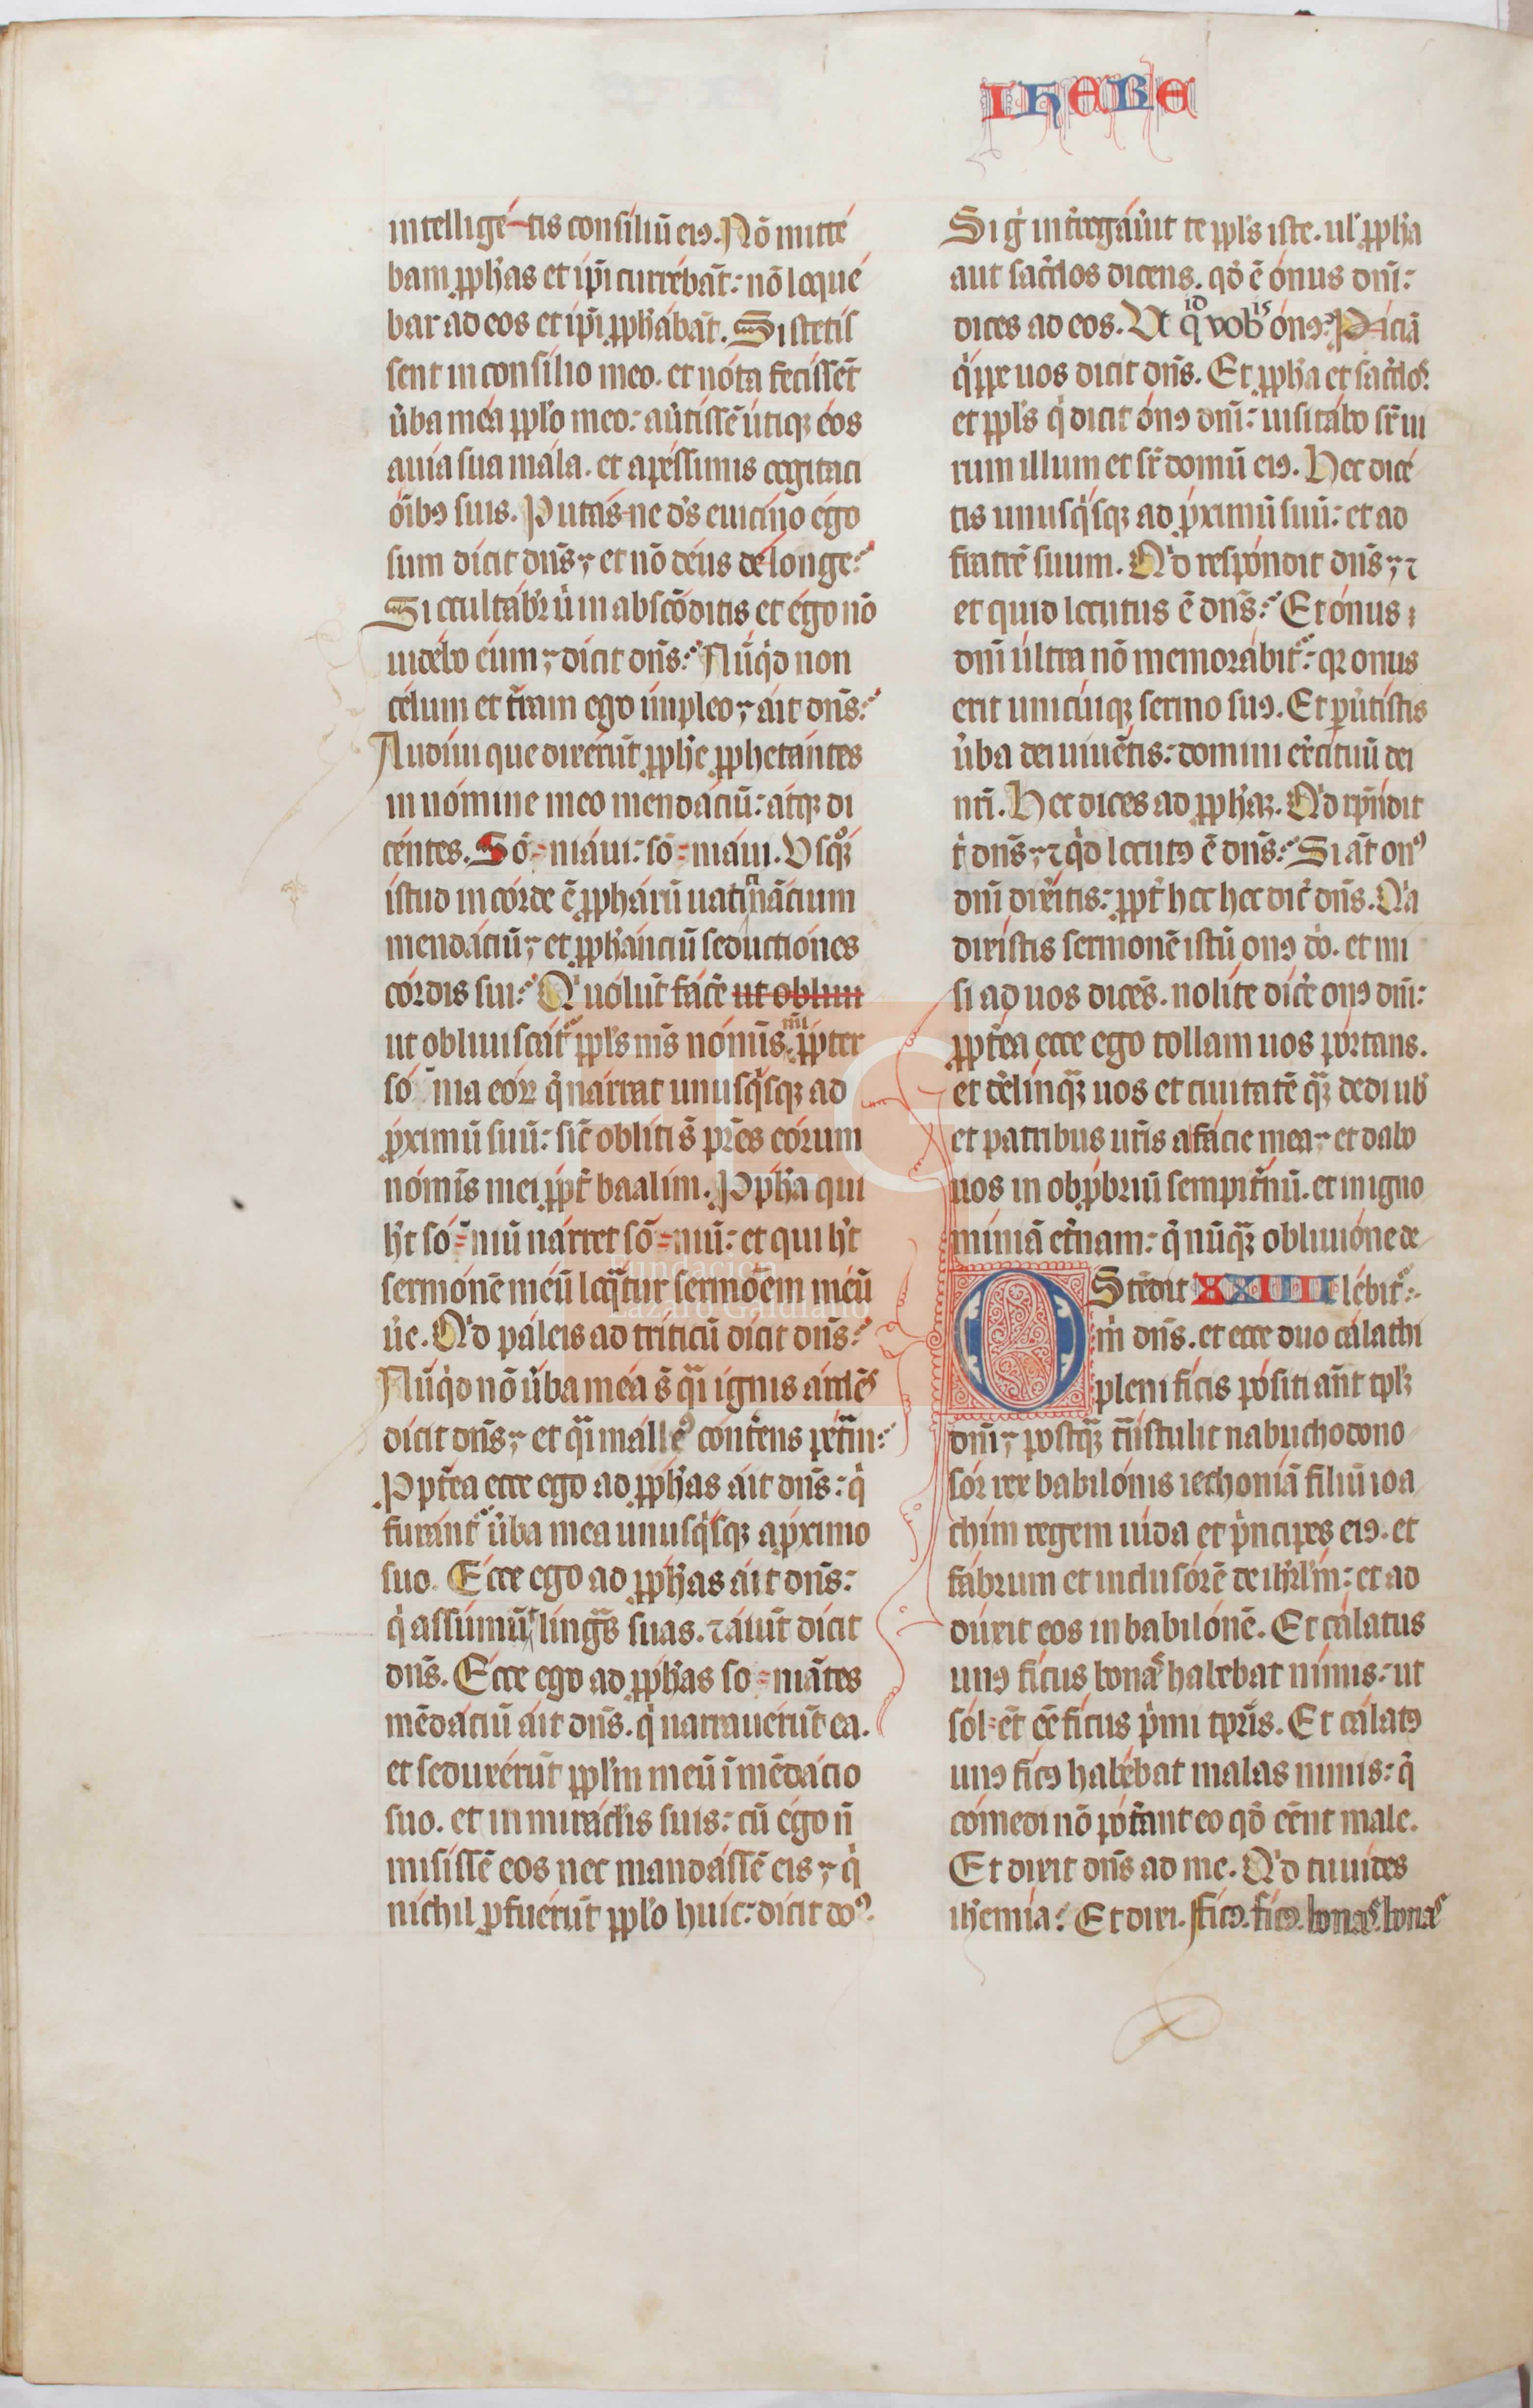 IHERE
intelligētis consiliū eiꝰ. Nō mitte
bam ꝓph̄as et ip̄i currebāt: nō loque
bar ad eos et ip̄i ꝓph̄abāt. Si stetis
sent in consilio meo. et nota fecissēt
ūba mea ppl̄o meo: aūtissē utiqꝫ eos
a uia sua mala. et a pessimis cogitaci
ōibꝰ suis. Putas-ne dꝰs e uicino ego
sum dicit dn̄s, et nō deus de longe?
Si occultabr̄ ū in abscōditis et ego nō
uidebo eum, dicit dn̄s? Nūqͥd non
celum et t̄ram ego impleo, ait dn̄s?
Audiui que dixerūt ꝓph̄e ꝓphetantes
in nomine meo mendaciū: atqꝫ di
centes. Sō-niaui: sō-niaui. Vsqꝫqͦ
istud in corde ē ꝓpharū uaticināciū
mendaciū, et ꝓph̄anciū seductiones
cordis sui? Qͥ uolūt facē ut obliui
ut obliuiscat̉ ppl̄s mꝰs noīs mī ꝓpter
sō nia eoꝝ q̄ narrat unusqͥsqꝫ ad
ꝓximū suū: sic̄ obliti s̄ pr̄es eorum
nomīs mei ꝓpt̄ baalim. Ppħa qui
h̄t sō-niū narret sō-niū: et qui h̄t
sermonē meū loqᷓtur sermonem meū
ūe. Qͥd paleis ad triticū dicit dn̄s?
Nūqͥd nō ūba mea s̄ qᷓi ignis ardēs
dicit dn̄s, et qᷓi malleꝰ contēns petrᷓm?
Ppt̄ea ecce ego ad ꝓph̄as ait dn̄s: qͥ
furant̉ ūba mea unusqͥsqꝫ a ꝓximo
suo. Ecce ego ad ꝓph̄as ait dn̄s:
qͥ assumūt lingᷓs suas. ⁊ aiūt dicit
dn̄s. Ecce ego ad ꝓph̄as so-niātes
mēdaciū ait dn̄s. qͥ narrauerūt ea.
et seduxerūt ppl̄m meū ī mēdacio
suo. et in miraclis suis: cū ego n̄
misissē eos nec mandassē eis, qͥ
nichil ꝓfuerūt ppl̄o huic: dicit doꝰ.
Si gͥ int̄rogaūit te ppl̄s iste. ul̄ ꝓph̄a
aut sac̄dos dicens. qd̄ ē onus dn̄i:
dices ad eos. Vt qͥd vobis onꝰ? Piciā
qͥppe uos dicit dn̄s. Et ꝓph̄a et sac̄dos
et ppl̄s qͥ dicit onꝰ dn̄i: uisitabo sr̄ ui
rum illum et sr̄ domū eiꝰ. Hec dice
tis unusqͥsqꝫ ad ꝓximū suū: et ad
fratrē suum. Qͥd respondit dn̄s, ⁊
et quid locutus ē dn̄s? Et onus
dn̄i ultra nō memorabit̉: qꝛ onus
erit unicuiqꝫ sermo suꝰ. Et ꝑūtistis
ūba dei uiuētis: domini ex̄cituū dei
nr̄i. Hec dices ad ꝓph̄aꝫ. Qͥd rn̄dit
t̄ dn̄s, ⁊ qͥd locutꝰ ē dn̄s? Si aūt onꝰ
dn̄i dixītis: ꝓpt̄ hec hec dic̄ dn̄s. Qͥa
dixistis sermonē istū onꝰ dō. et mi
si ad uos dicēs. nolite dicē onꝰ dn̄i:
ꝓpt̄ea ecce ego tollam uos portans.
et d̄elinquā uos et ciuitatē qᷓꝫ dedi uob̄
et patribus ur̄is a facie mea, et dabo
uos in obꝓbriū sempit̄nū. et in igno
miniā et̄nam: q̄ nūqᷓꝫ obliuione de
Ostēdit XXIIII lebit̉.
m̄ dn̄s. et ecce duo calathi
pleni ficis positi añt tplꝫ
dn̄i, postqᷓꝫ trᷓstulit nabuchodono
sor rex babilonis iechoniā filiū ioa
chim regem iuda et pͥncipes eiꝰ. et
fabrum et inclusorē de ihrl̄m: et ad
duxit eos in babilonē. Et calatus
unꝰ ficus bonas habebat nimis: ut
sol-ēt eē ficus pͥmi tpr̄is. Et calatꝰ
unꝰ ficꝰ habebat malas nimis: q̄
comedi nō pot̄ant eo qd̄ er̄nt male.
Et dixit dn̄s ad me. Qͥd tu uides
ih̄emia? Et dixi. ficꝰ. ficꝰ. bonas. bonas